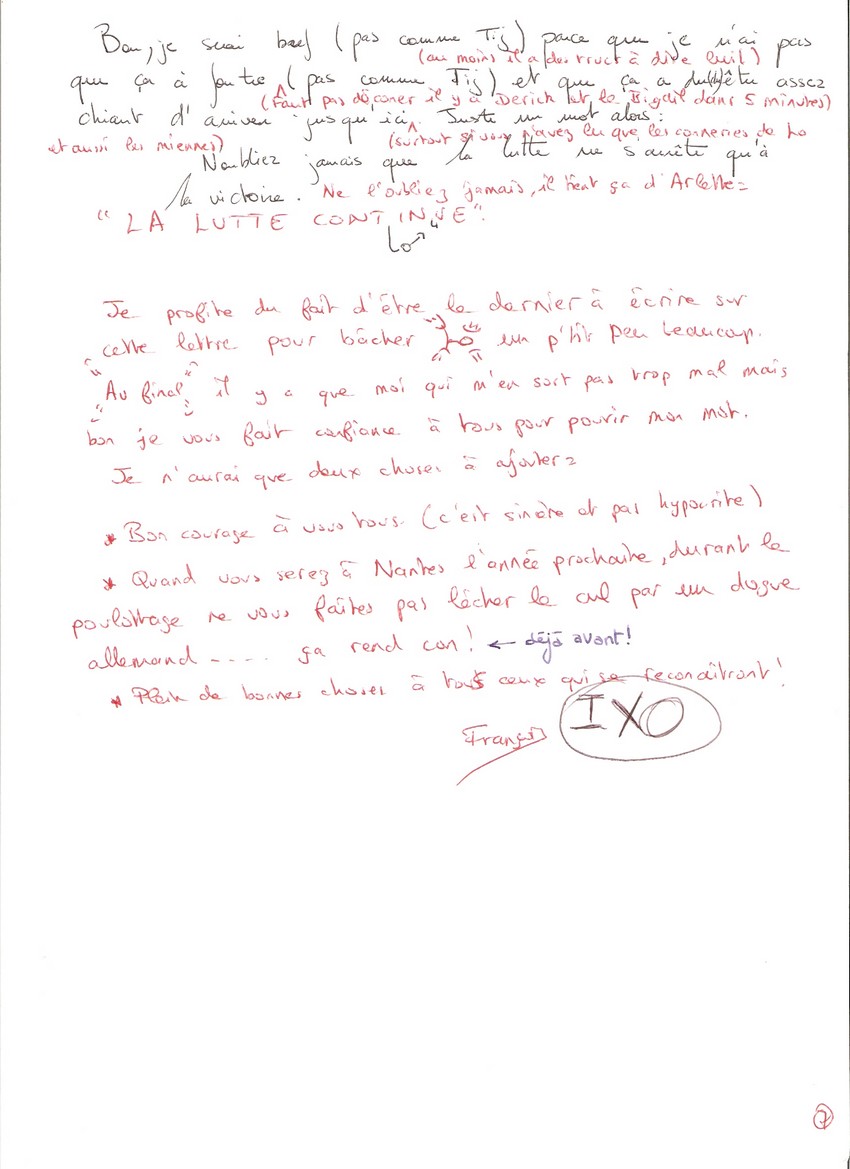 Bon, je serai bref (pas comme Tij) parce que je n'ai pas
(au moins il a des truct à dire lui!)
que ça à foutre (pas comme Tij) et que ça a dû être assez
(Faut pas déconer il y a Derick et le Bigdil dans 5 minutes)
chiant d'arriver jusqu'ici. Juste un mot alors :
et aussi les miennes) (surtout si vous n'avez lu que les conneries de Lo
N'oubliez jamais que la lutte ne s'arrête qu'à
la victoire. Ne l'oubliez jamais, il tient ça d'Arlette =
"LA LUTTE CONTINUE".
Lo
Je profite du fait d'être le dernier à écrire sur
cette lettre pour bâcher Lo un p'tit peu beaucoup.
"Au final" il y a que moi qui m'en sort pas trop mal mais
bon je vous fait confiance à tous pour pourir mon mot.
Je n'aurai que deux choses à ajouter =
* Bon courage à vous tous. (c'est sincère et pas hypocrite)
* Quand vous serez à Nantes l'année prochaine, durant le
poulottrage ne vous faîtes pas lêcher le cul par un dogue
allemand .... ça rend con! ← déjà avant!
* Plein de bonnes choses à tous ceux qui se reconaîtront!
François IXO
7